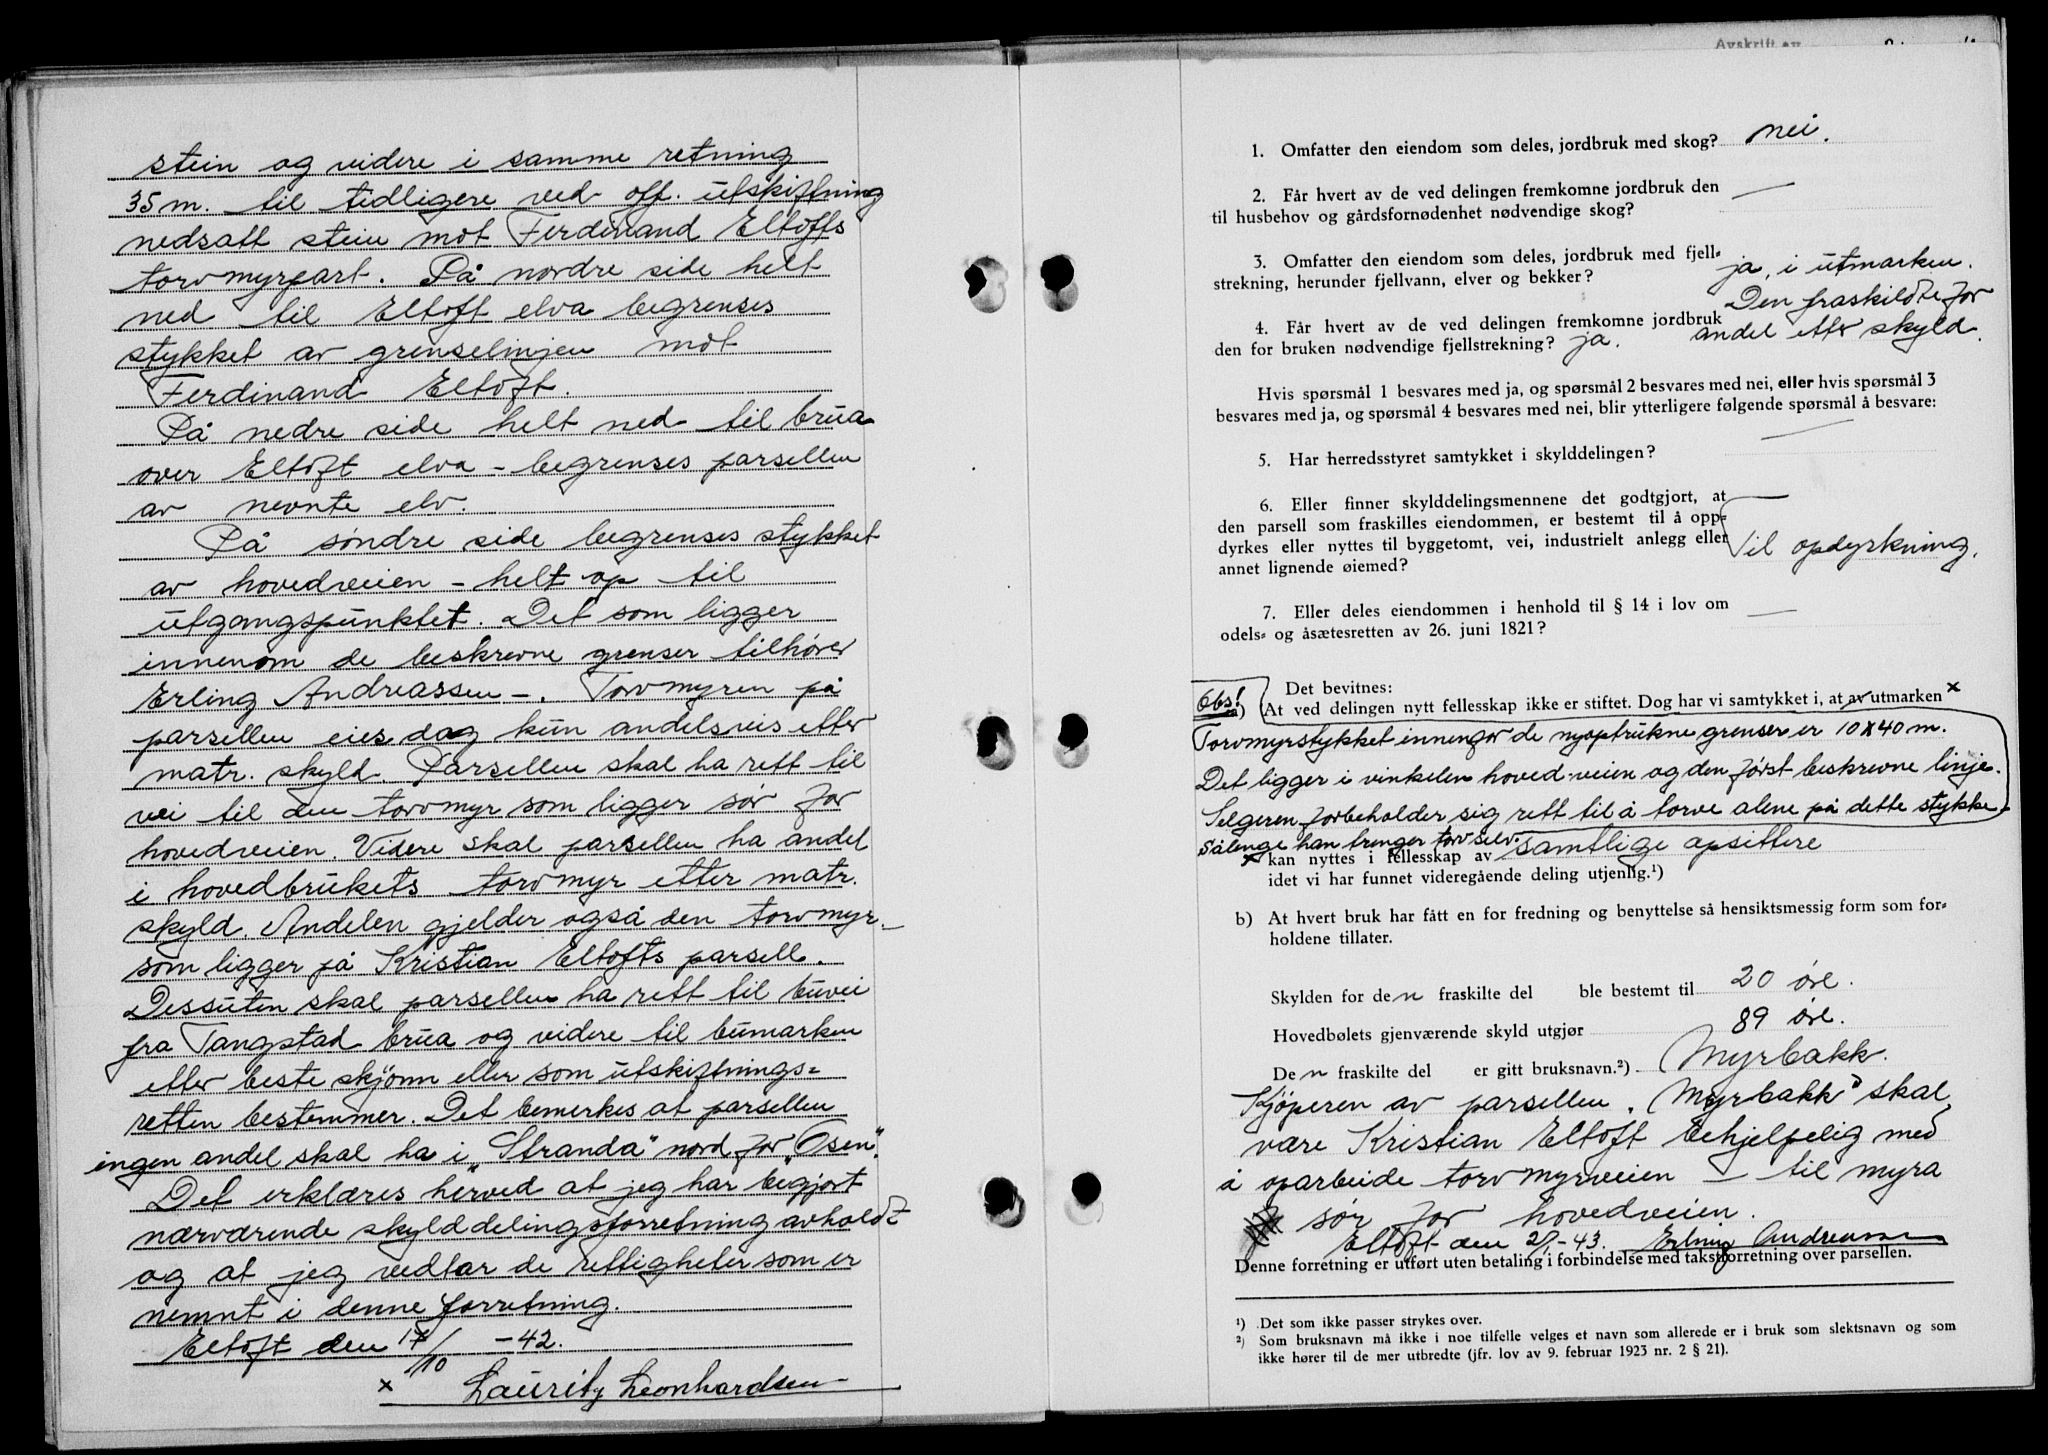 stein og videre i samme retning
35 m. til tidligere ved off. utskiftning
nedsatt stein mot Ferdinand Eltofts
torvmyrpart. På nordre side helt
ned til Eltoft elva begrenses
stykket av grenselinjen mot
Ferdinand Eltoft.
På nedre side helt ned til brua
over Eltoft elva - begrenses parsellen
av nevnte elv.
På søndre side begrenses stykket
av hovedveien - helt op til
utgangspunktet. Det som ligger
innenom de beskrevne grenser tilhører
Erling Andreassen -. Torvmyren på
parsellen eies dog kun andelsvis etter
matr. skyld. Parsellen skal ha rett til
vei til den torvmyr som ligger sør for
hovedveien. Videre skal parsellen ha andel
i hovedbrukets torvmyr etter matr.
skyld. Andelen gjelder også den torvmyr
som ligger på Kristian Eltofts parsell.
Dessuten skal parsellen ha rett til buvei
fra Tangstad brua og videre til bumarken
etter beste skjønn eller som utskiftnings=
retten bestemmer. Det bemerkes at parsellen
ingen andel skal ha i „Stranda" nord for „Osen".
Det erklæres herved at jeg har begjørt
nærværende skylddelingsforretning avholdt
og at jeg vedtar de rettigheter som er
nemnt i denne forretning.
Eltoft den 17/10 -42.
x Lauritz Leonhardsen
Avskrift av
1. Omfatter den eiendom som deles, jordbruk med skog? nei.
2. Får hvert av de ved delingen fremkomne jordbruk den —
til husbehov og gårdsfornødenhet nødvendige skog?
3. Omfatter den eiendom som deles, jordbruk med fjell= ja, i utmarken.
strekning, herunder fjellvann, elver og bekker? Den fraskildte for
4. Får hvert av de ved delingen fremkomne jordbruk andel etter skyld.
den for bruken nødvendige fjellstrekning? ja.
Hvis spørsmål 1 besvares med ja, og spørsmål 2 besvares med nei, eller hvis spørsmål 3
besvares med ja, og spørsmål 4 besvares med nei, blir ytterligere følgende spørsmål å besvare:
5. Har herredsstyret samtykket i skylddelingen? —
6. Eller finner skylddelingsmennene det godtgjort, at —
den parsell som fraskilles eiendommen, er bestemt til å opp=
dyrkes eller nyttes til byggetomt, vei, industrielt anlegg eller Til opdyrkning.
annet lignende øiemed?
7. Eller deles eiendommen i henhold til § 14 i lov om —
odels= og åsætesretten av 26. juni 1821?
Det bevitnes:
Obs! a) At ved delingen nytt fellesskap ikke er stiftet. Dog har vi samtykket i, at av utmarken x
Torvmyrstykket innenfor de nyoptrukne grenser er 10 x 40 m.
Det ligger i vinkelen hoved-veien og den først beskrevne linje.
Selgeren forbeholder sig rett til å torve alene på dette stykke
sålenge han trenger torv selv.
x kan nyttes i fellesskap av samtlige opsittere
idet vi har funnet videregående deling utjenlig.¹)
b) At hvert bruk har fått en for fredning og benyttelse så hensiktsmessig form som for=
holdene tillater.
Skylden for den fraskilte del ble bestemt til 20 øre.
Hovedbølets gjenværende skyld utgjør 89 øre.
Den fraskilte del er gitt bruksnavn.²) Myrbakk.
Kjøperen av parsellen „Myrbakk" skal
være Kristian Eltoft behjelpelig med
å oparbeide torvmyrveien — til myra
sør for hovedveien.
Eltoft den -43. Erling Andreassen
Denne forretning er utført uten betaling i forbindelse med takstforretning over parsellen.
¹) Det som ikke passer strykes over.
²) Som bruksnavn må ikke i noe tilfelle velges et navn som allerede er i bruk som slektsnavn og som
ikke hører til de mer utbredte (jfr. lov av 9. februar 1923 nr. 2 § 21).